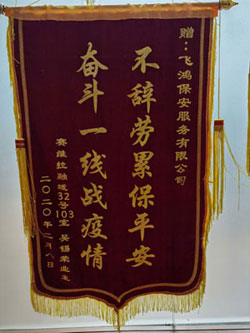 赠:飞鸿保安服务有限公司
不辞劳累保平安
奋斗一线战疫情
赛维拉融城32号103室 吴锡荣业主
二〇二〇年二月八日